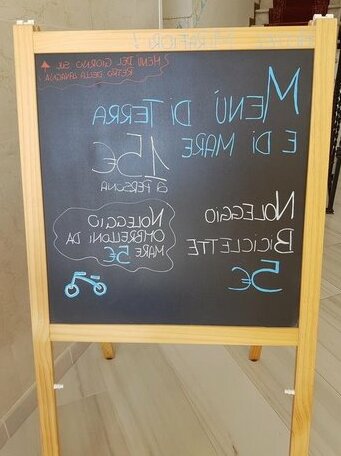 MENÙ DEL GIORNO SUL
RETRO DELLA LAVAGNA
MENÙ DI TERRA
E DI MARE
15€
a PERSONA
NOLEGGIO
BICICLETTE
5€
NOLEGGIO
OMBRELLONI DA
MARE 5€